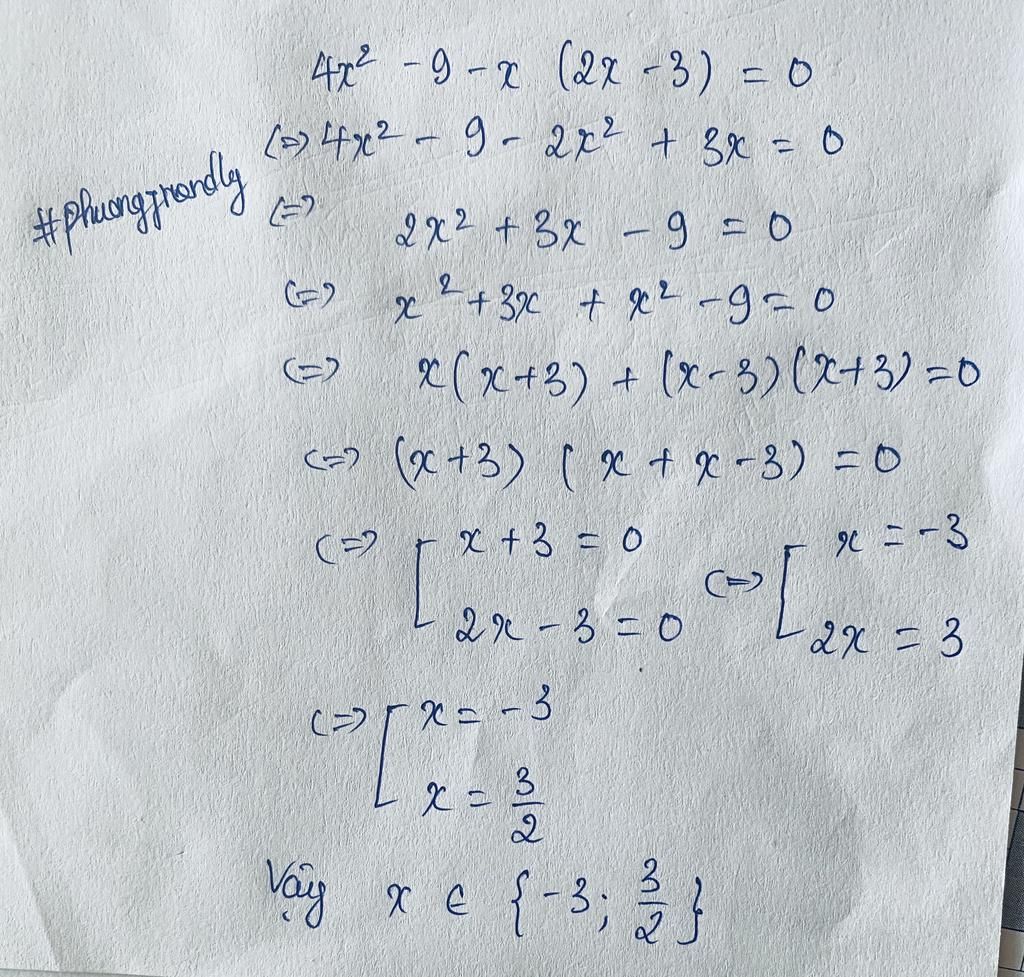 4x² - 9 - x (2x - 3) = 0
(=) 4x² - 9 - 2x² + 3x = 0
#phuongjrandly
(=) 2x² + 3x - 9 = 0
(=) x² + 3x + x² - 9 = 0
(=) x(x+3) + (x-3)(x+3) = 0
(=) (x+3) (x + x - 3) = 0
(=) [ x + 3 = 0 (=) [ x = -3
2x - 3 = 0 2x = 3
(=) [ x = -3
x = 3/2
Vậy x ∈ {-3; 3/2}